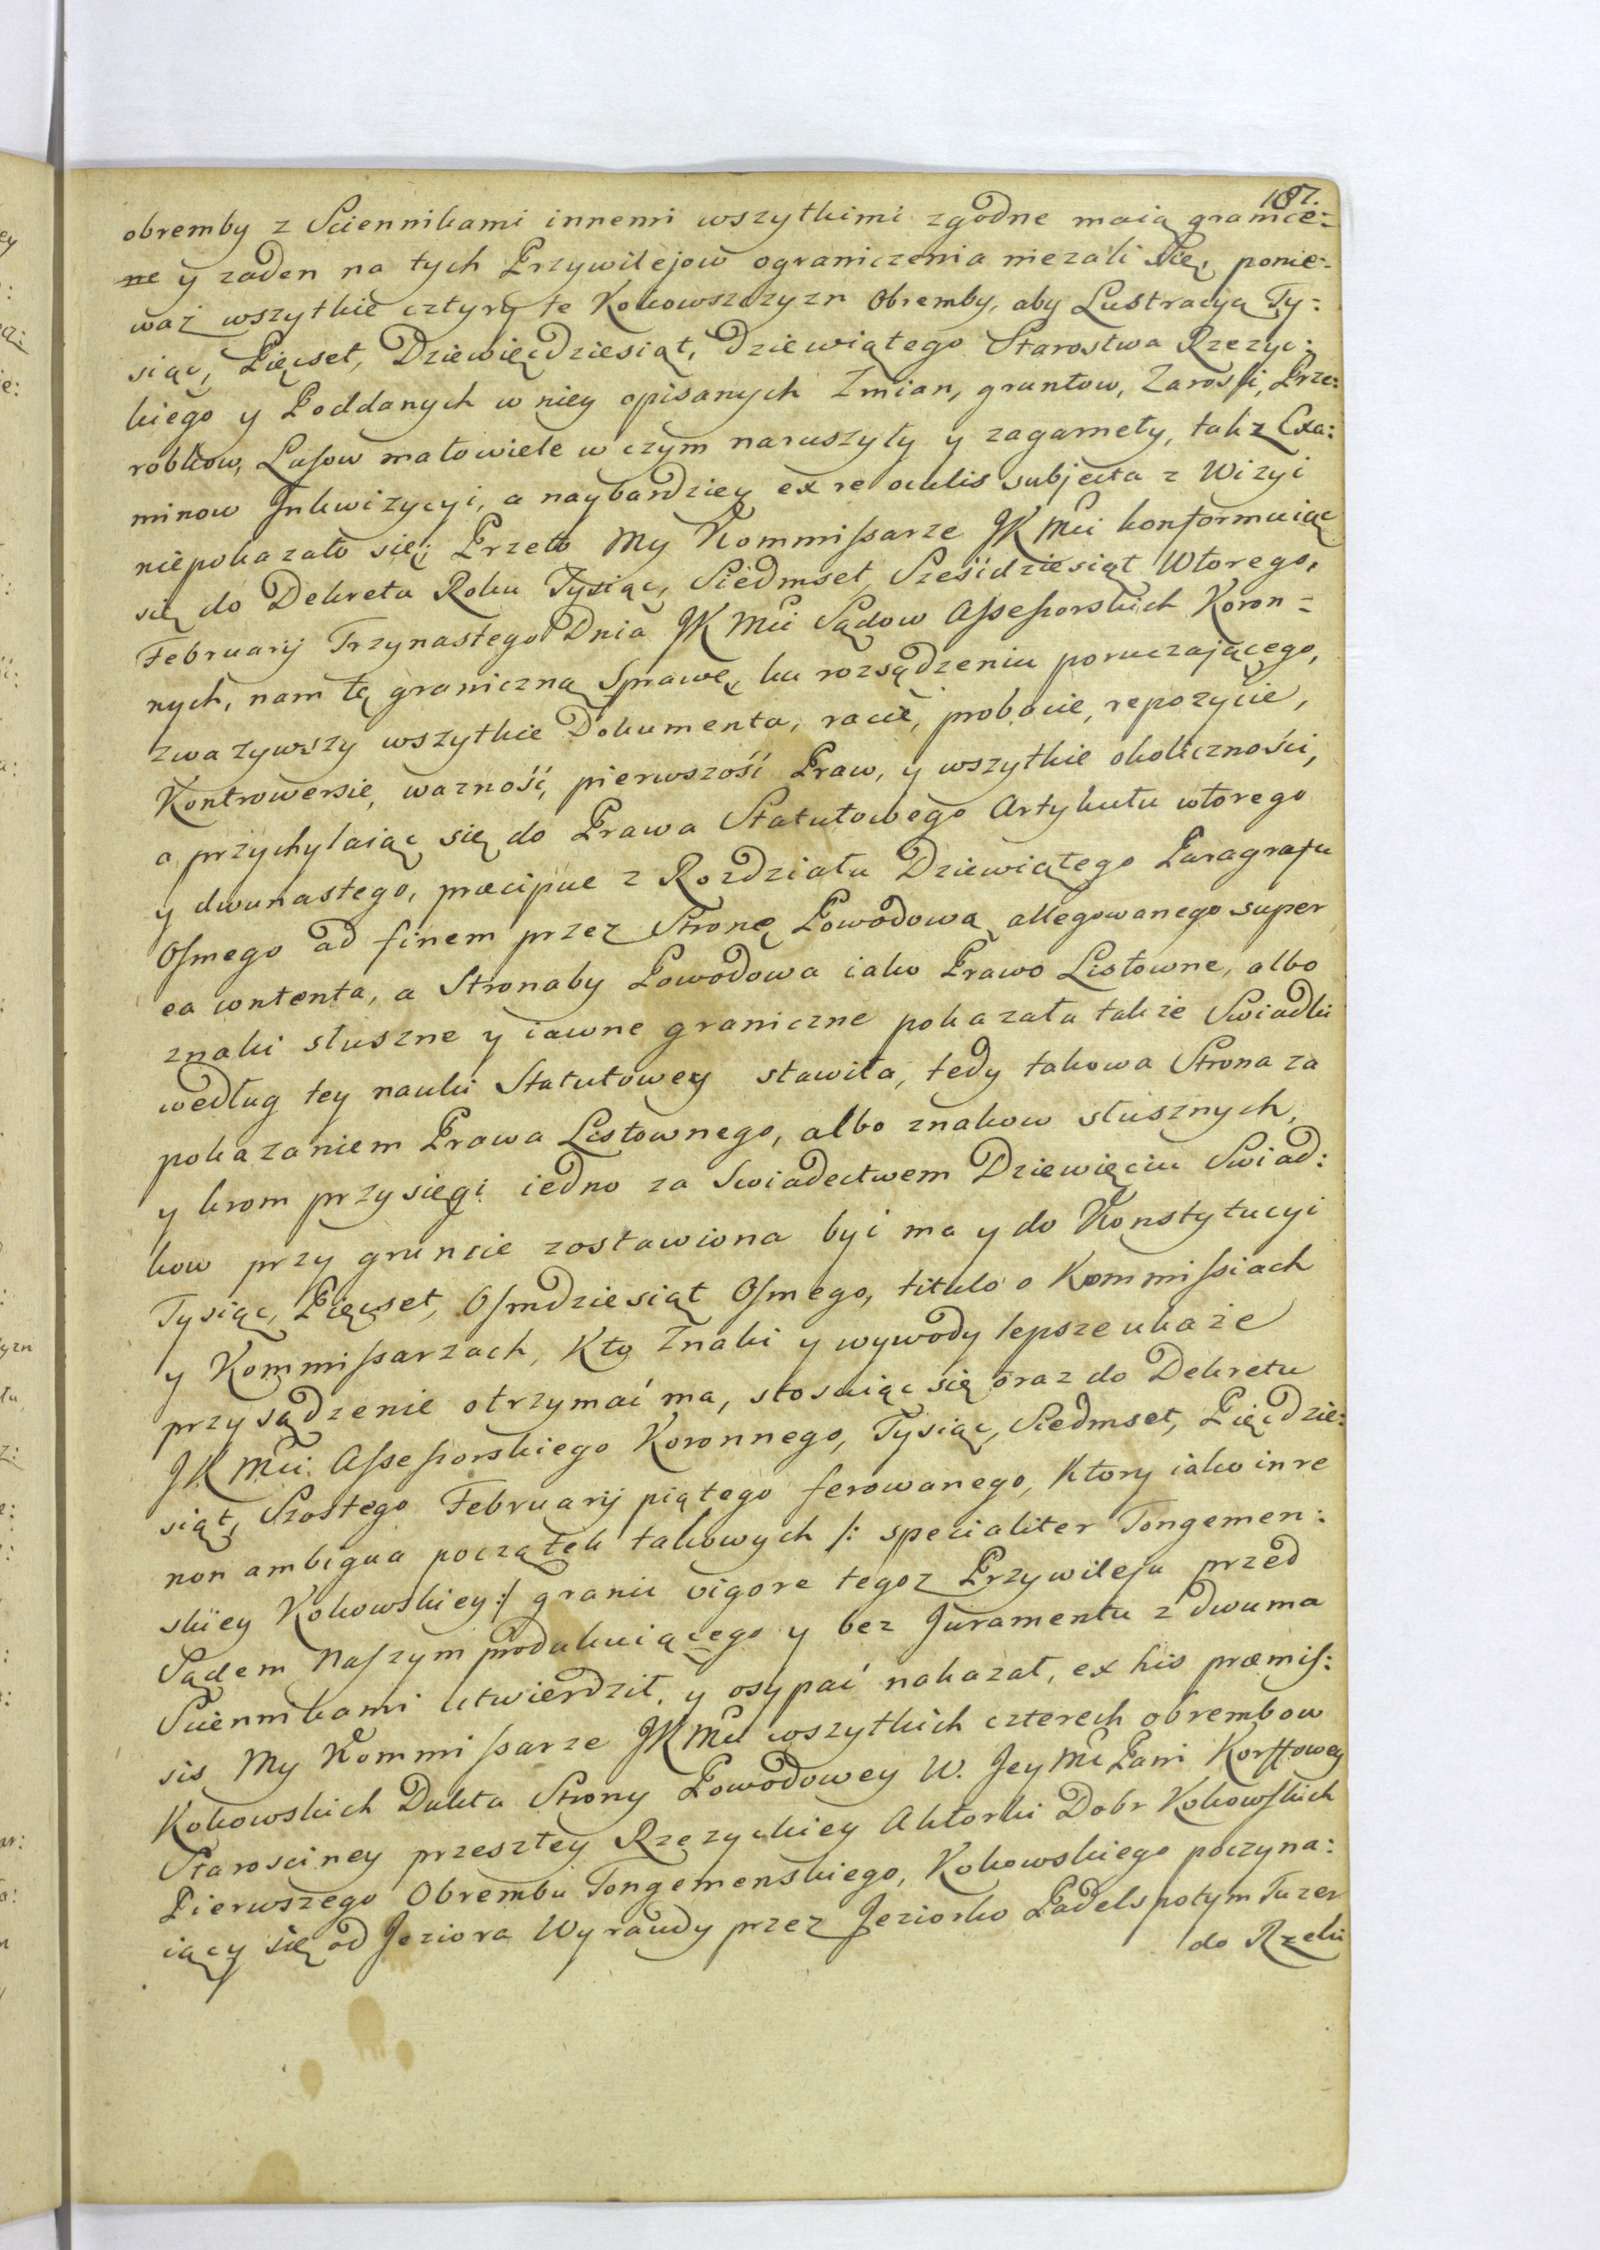 187.
obremby z Sciennikami innemi wszytkimi zgodne maią granice:
ne y zaden na tych Przywilejow ograniczenia niezali się, ponie:
waż wszytkie cztyry te Kokowszczyzn Obremby, aby Lustracyą Ty:
siąc, Pięcset, Dziewięcdziesiąt, dziewiątego Starostwa Rzezyc:
kiego y Poddanych w niey opisanych Zmian, gruntow, Zarosli, Prze:
robkow, Lasow małowiele w czym naruszyły y zagarneły, tak z Exa:
minow Inkwizycyi, a naybardziey ex re oculis subjecta z Wizyi
niepokazało się; Przeto My Kommissarze JK Mci konformuiąc
się do Dekretu Roku Tysiąc, Siedmset, Sześćdziesiąt Wtorego,
Februarij Trzynastego Dnia JK Mci Sądow Assessorskich Koron=
nych, nam tę graniczną Sprawę, ku rozsądzeniu poruczającego,
zważywszy wszytkie Dokumenta, racie, probacie, repozycie,
Kontrowersie, wazność, pierwszość Praw, y wszytkie okoliczności,
a przychylaiąc się do Prawa Statutowego Artykułu wtorego
y dwunastego, præcipue z Rozdziału Dziewiątego Paragrafu
Osmego ad finem przez Stronę Powodową allegowanego super
ea contenta, a Stronaby Powodowa iako Prawo Listowne, albo
znaki słuszne y iawne graniczne pokazała także Swiadki
według tey nauki Statutowey stawiła, tedy takowa Strona za
pokazaniem Prawa Listownego, albo znakow słusznych,
y krom przysięgi iedno za Swiadectwem Dziewięciu Swiad:
kow przy gruncie zostawiona być ma y do Konstytucyi
Tysiąc, Pięcset, Osmdziesiąt Osmego, titulo o Kommissiach
y Kommissarzach, Kto Znaki y wywody lepsze ukaże
przysądzenie otrzymać ma, stosuiąc się oraz do Dekretu
JK Mci Assessorskiego Koronnego, Tysiąc, Siedmset, Pięcdzie:
siąt, Szostego Februarij piątego ferowanego, Ktory iako in re
non ambigua początek takowych /: specialiter Tongemen:
skiey Kokowskiey :/ granic vigore tegoz Przywileju przed
Sądem Naszym produkuiącego y bez Juramentu z dwuma
Sciennikami utwierdził, y osypać nakazał, ex his præmis:
sis My Kommissarze JK Mci wszytkich czterech obrembow
Kokowskich Dukta Strony Powodowey W. Jey Mci Pani Korffowey
Starosciney przeszłey Rzezyckiey Aktorki Dobr Kokowskich
Pierwszego Obrembu Tongemenskiego, Kokowskiego poczyna:
iący się od Jeziora Wyraudy przez Jeziorko Padels potym Tuzer
do Rzeki